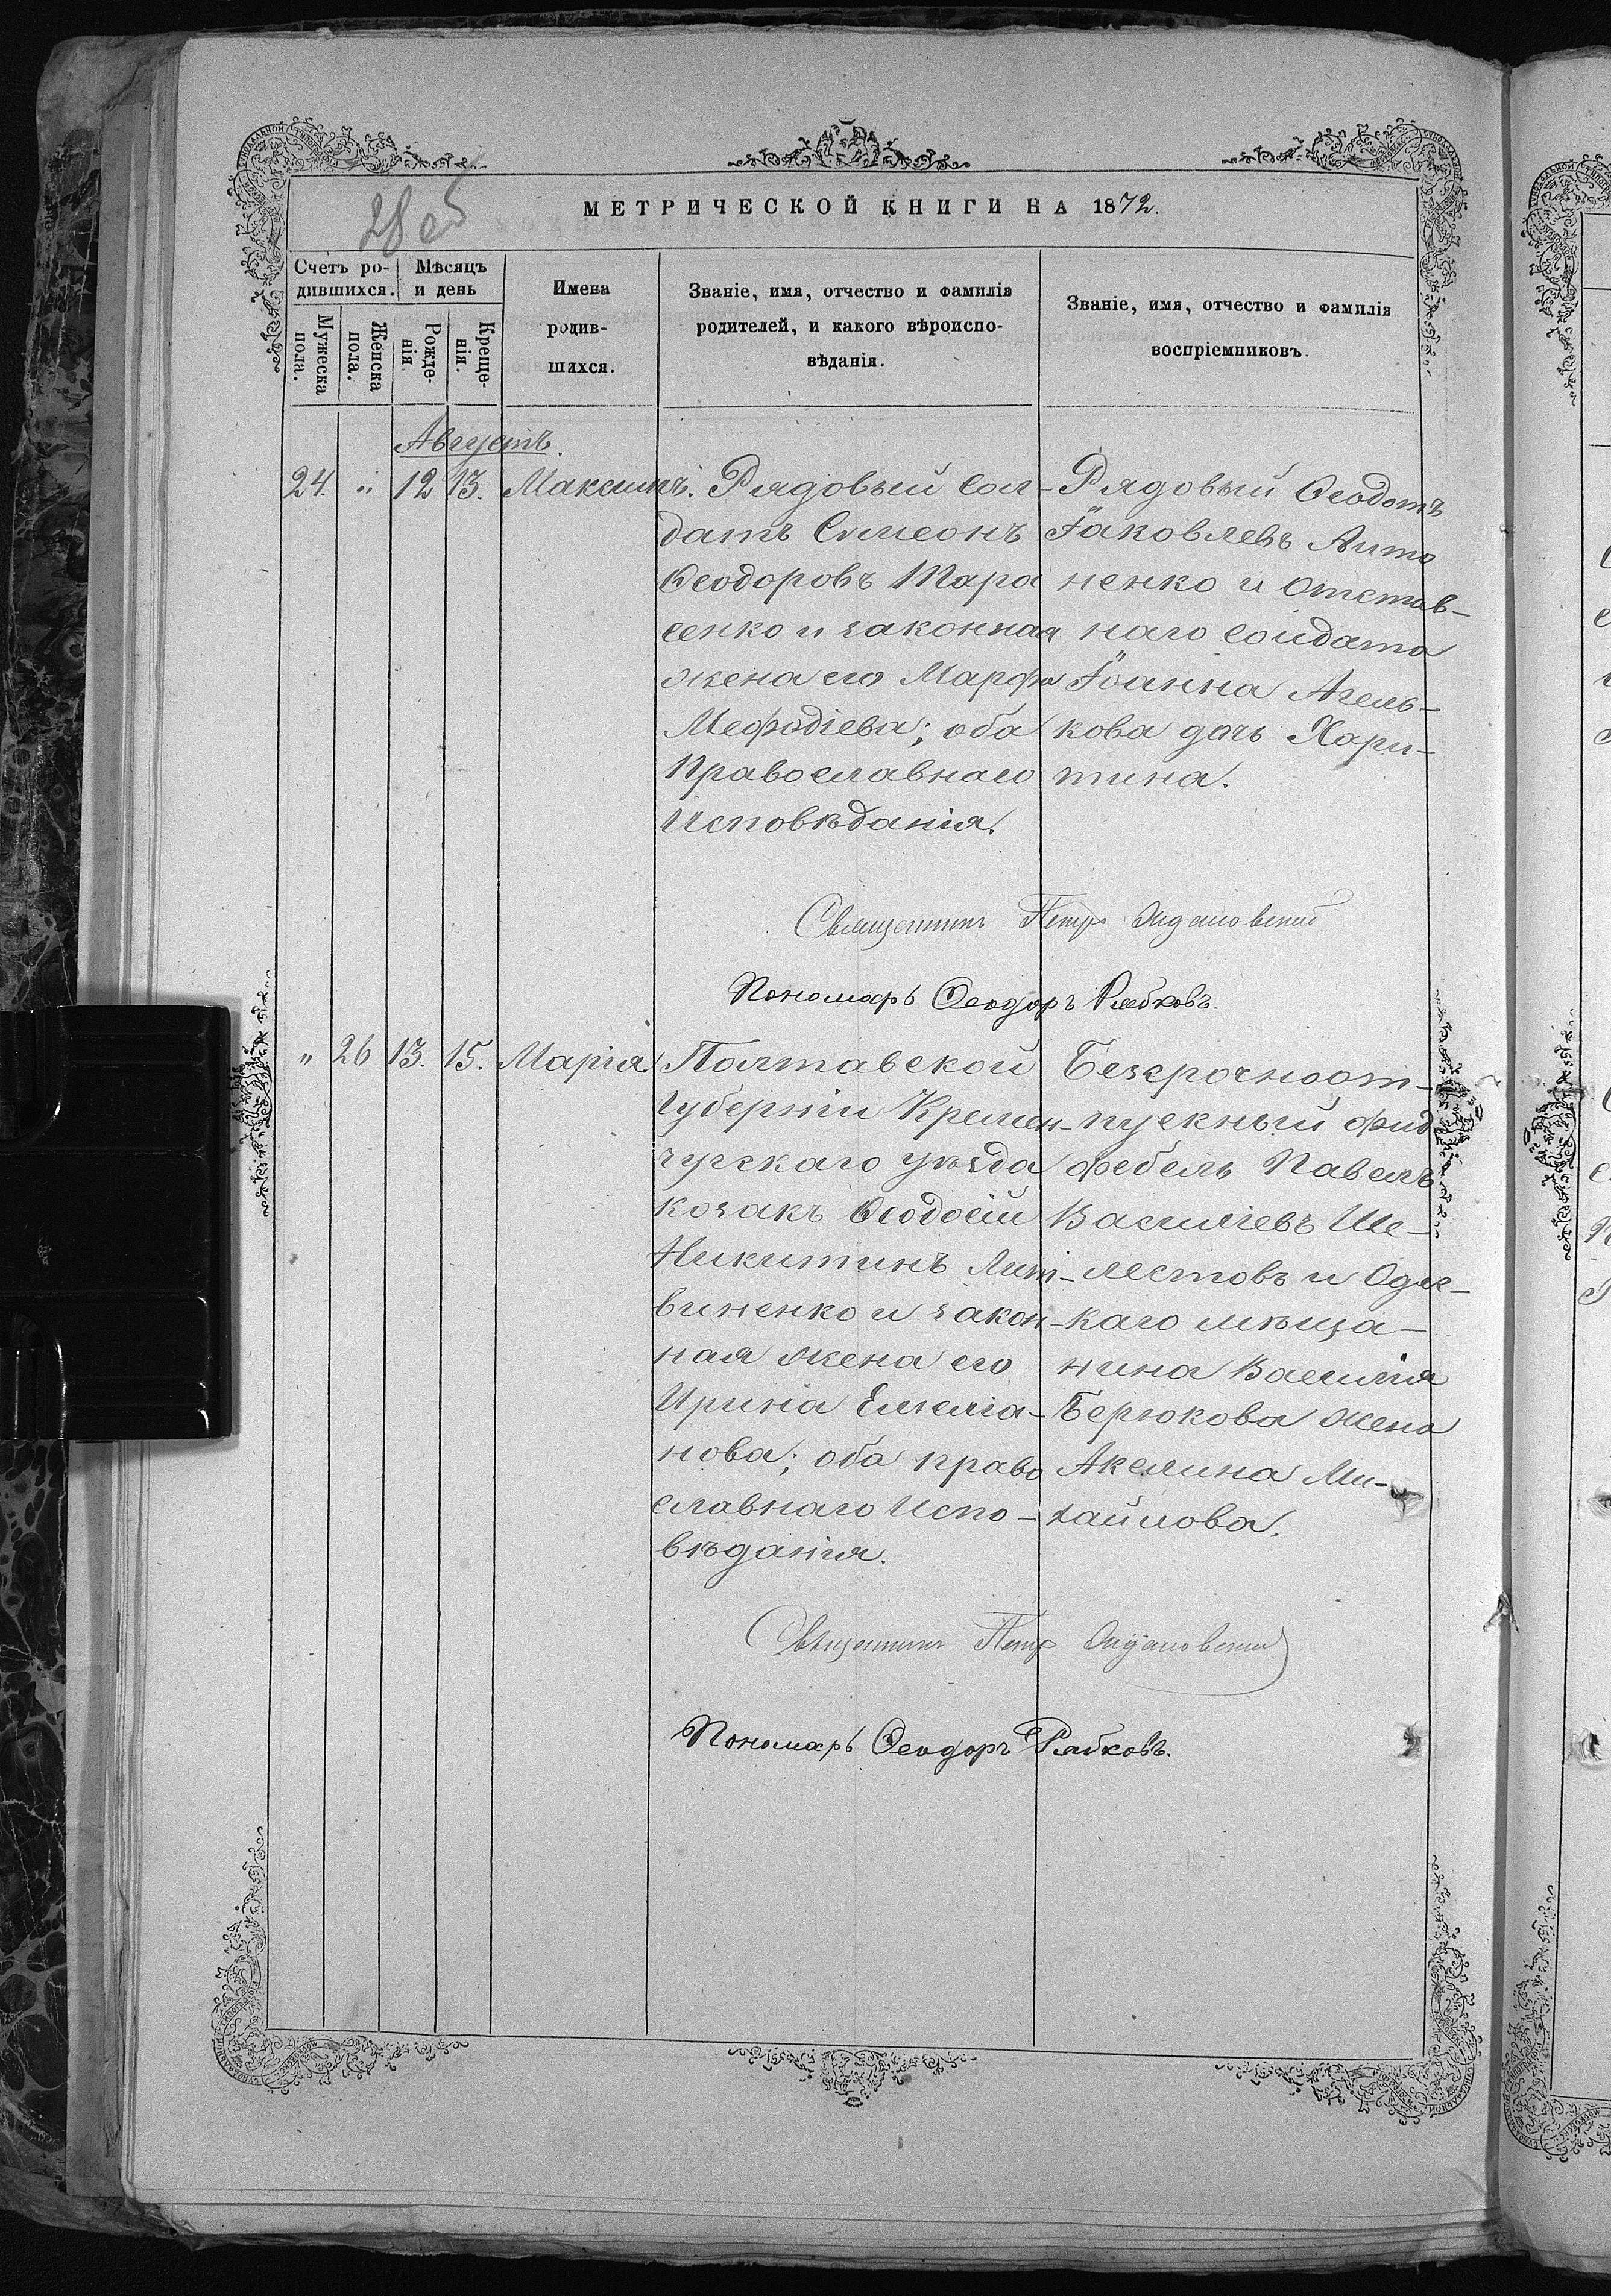 28 об
МЕТРИЧЕСКОЙ КНИГИ НА 1872.
Счетъ родившихся.
Мужеска пола.
Женска пола.
Мѣсяцъ и день
Рожденія.
Крещенія.
Имена родившихся.
Званіе, имя, отчество и фамилія
родителей, и какого вѣроиспо-
вѣданія.
Званіе, имя, отчество и фамилія
воспріемниковъ.
Августъ.
24. " 12 13. Максимъ.
Рядовый Сол-
датъ Симеонъ
Ѳеодоровъ Тара
сенко и законная
жена его Марфа
Меѳодіева; оба
Православнаго
Исповѣданія.
Рядовый Ѳеодотъ
Іаковлевъ Анто
ненко и отстав-
наго солдата
Іоанна Агель-
кова дочь Хари-
тина.
Священникъ Петръ
Пономарь Ѳеодоръ Рябковъ.
" 26 13. 15. Марія
Полтавской
Губерніи Кремен-
чугскаго уѣзда
козакъ Ѳеодосій
Никитинъ Лит-
виненко и закон-
ная жена его
Ирина Емеліа-
нова; оба право
славнаго Испо-
вѣданія.
Безсрочноот-
пускный фид
фебель Павелъ
Василіевъ Ше-
лестовъ и Одес-
каго мѣща-
нина Василія
Берюкова жена
Акелина Ми-
хайлова.
Священникъ Петръ
Пономарь Ѳеодоръ Рябковъ.